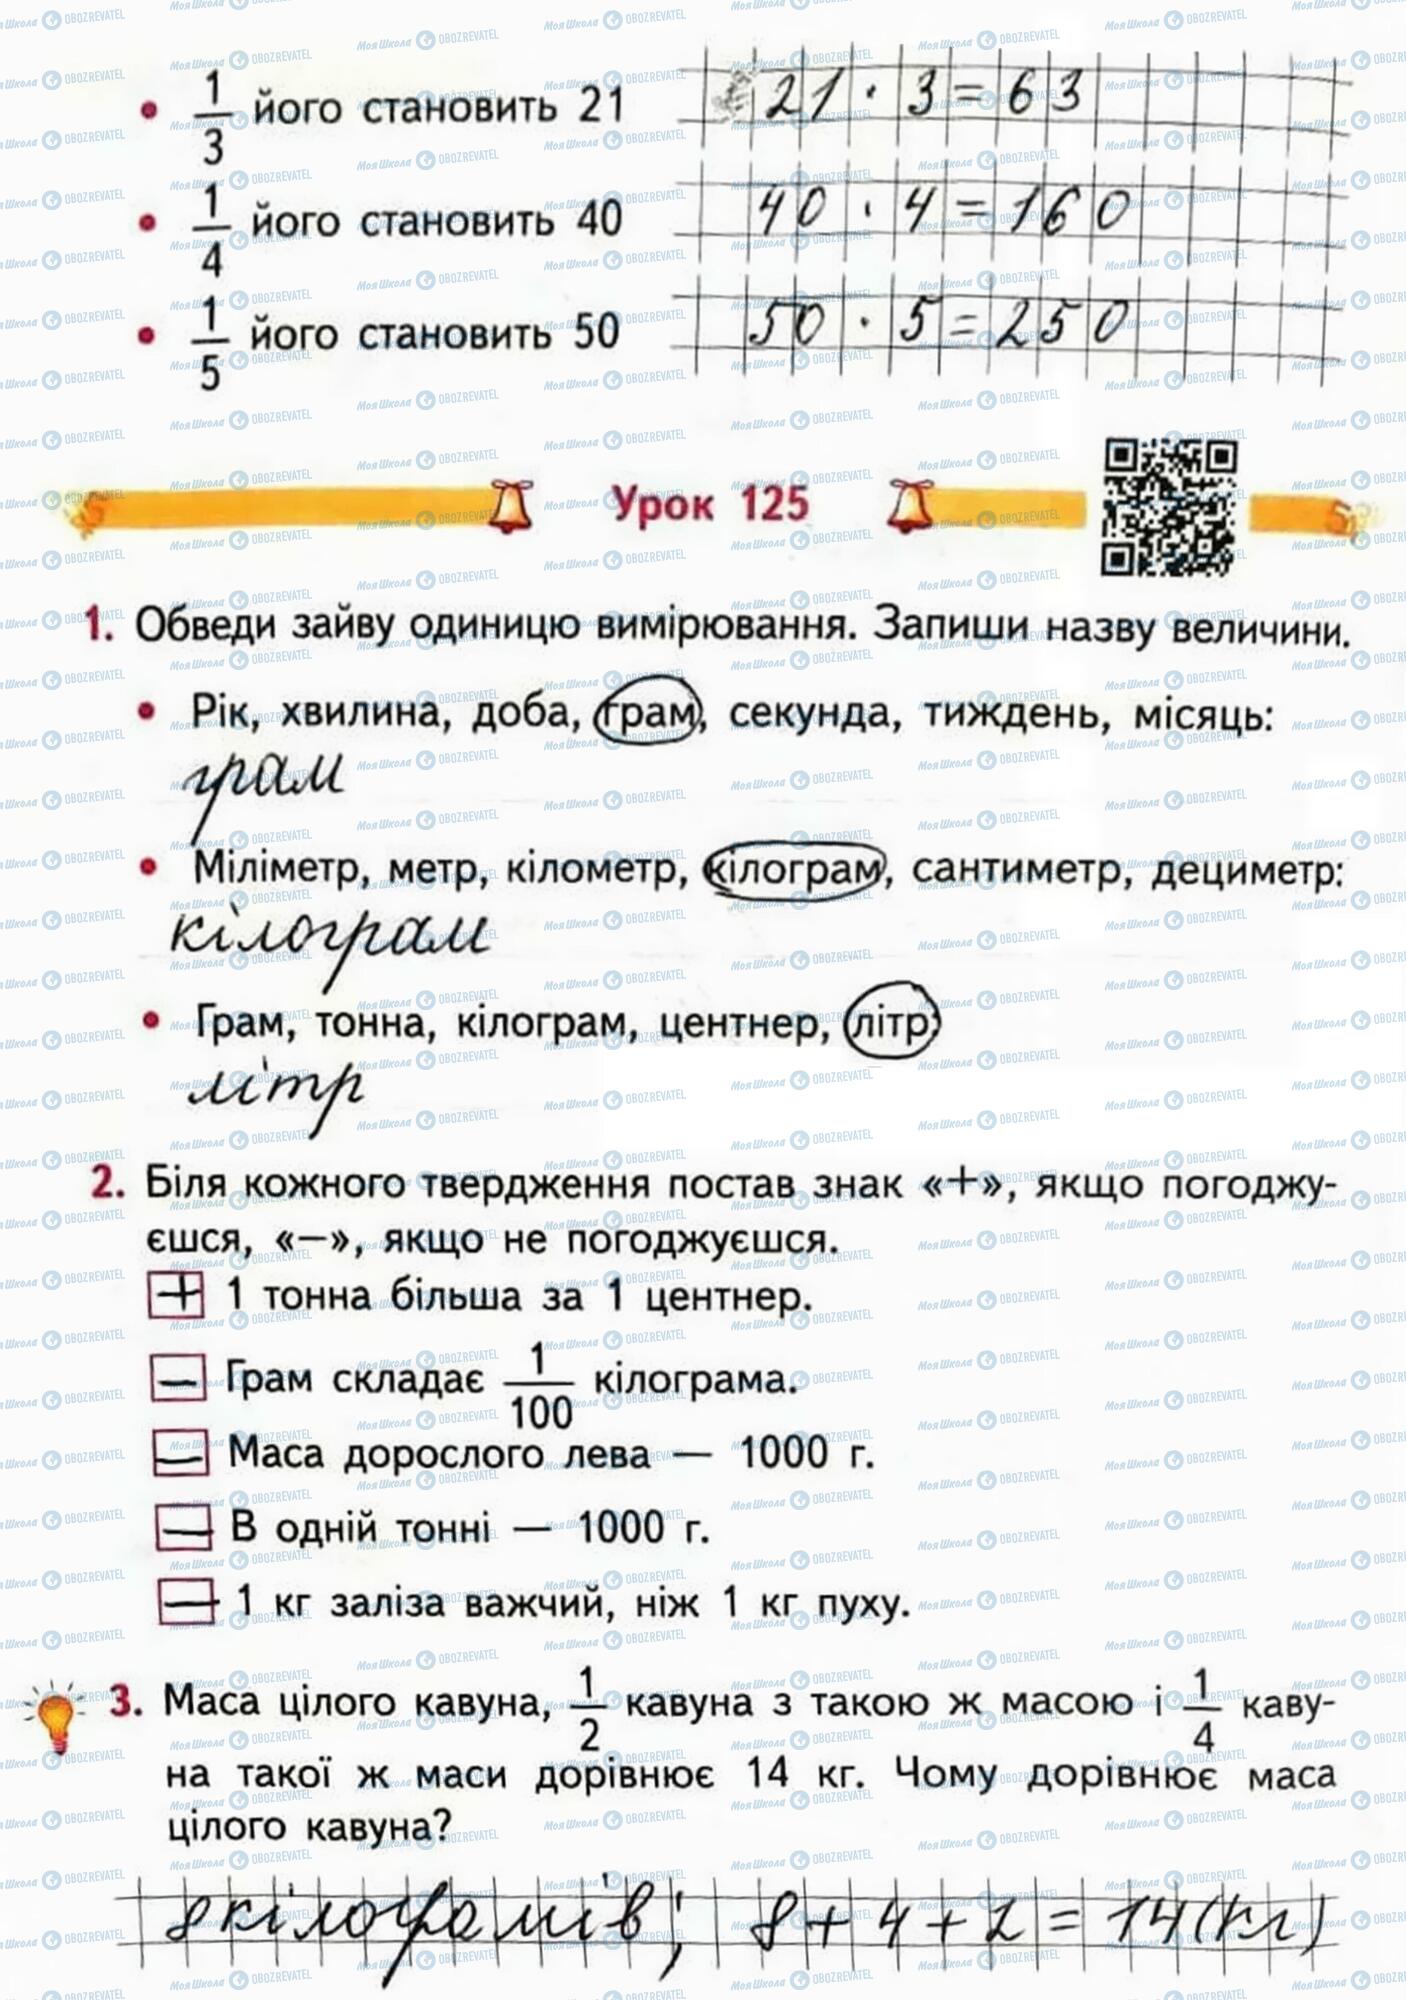 1/3 його становить 21   21 · 3 = 63
1/4 його становить 40   40 · 4 = 160
1/5 його становить 50   50 · 5 = 250
Урок 125
1. Обведи зайву одиницю вимірювання. Запиши назву величини.
• Рік, хвилина, доба, грам, секунда, тиждень, місяць:
грам
• Міліметр, метр, кілометр, кілограм, сантиметр, дециметр:
кілограм
• Грам, тонна, кілограм, центнер, літр:
літр
2. Біля кожного твердження постав знак «+», якщо погоджу-
єшся, «—», якщо не погоджуєшся.
+ 1 тонна більша за 1 центнер.
— Грам складає 1/100 кілограма.
— Маса дорослого лева — 1000 г.
— В одній тонні — 1000 г.
— 1 кг заліза важчий, ніж 1 кг пуху.
3. Маса цілого кавуна, 1/2 кавуна з такою ж масою і 1/4 каву-
на такої ж маси дорівнює 14 кг. Чому дорівнює маса
цілого кавуна?
8 кілограмів; 8 + 4 + 2 = 14 (кг)
МояШкола OBOZREVATEL